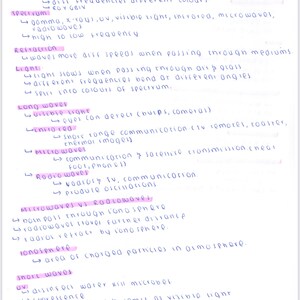 ↳ diff frequencies different colours
↳ ROYGBIV
spectrum:
↳ gamma, x-ray, uv, visible light, infrared, microwaves,
radiowaves
↳ high to low frequency
Refraction
↳ waves move diff speed when passing through mediums
Light:
↳ light slows when passing through air & glass
↳ different frequencies bend at different angles
↳ split into colours of spectrum.
Long waves
↳ visible light
↳ eyes can detect (bulbs, cameras)
↳ Infrared
↳ short range communication (TV remotes, toaster,
thermal images)
↳ Microwaves
↳ communication & satellite transmission (heat
food, phones)
↳ Radio waves
↳ radio & TV, communication
↳ produce oscillations
Microwaves vs Radiowaves:
↳ through ionosphere
↳ radiowaves further distance
↳ radios by ionosphere.
Ionosphere
↳ area of charged particles in atmosphere.
short waves
UV
↳ disinfect water kill microbes
as visible light